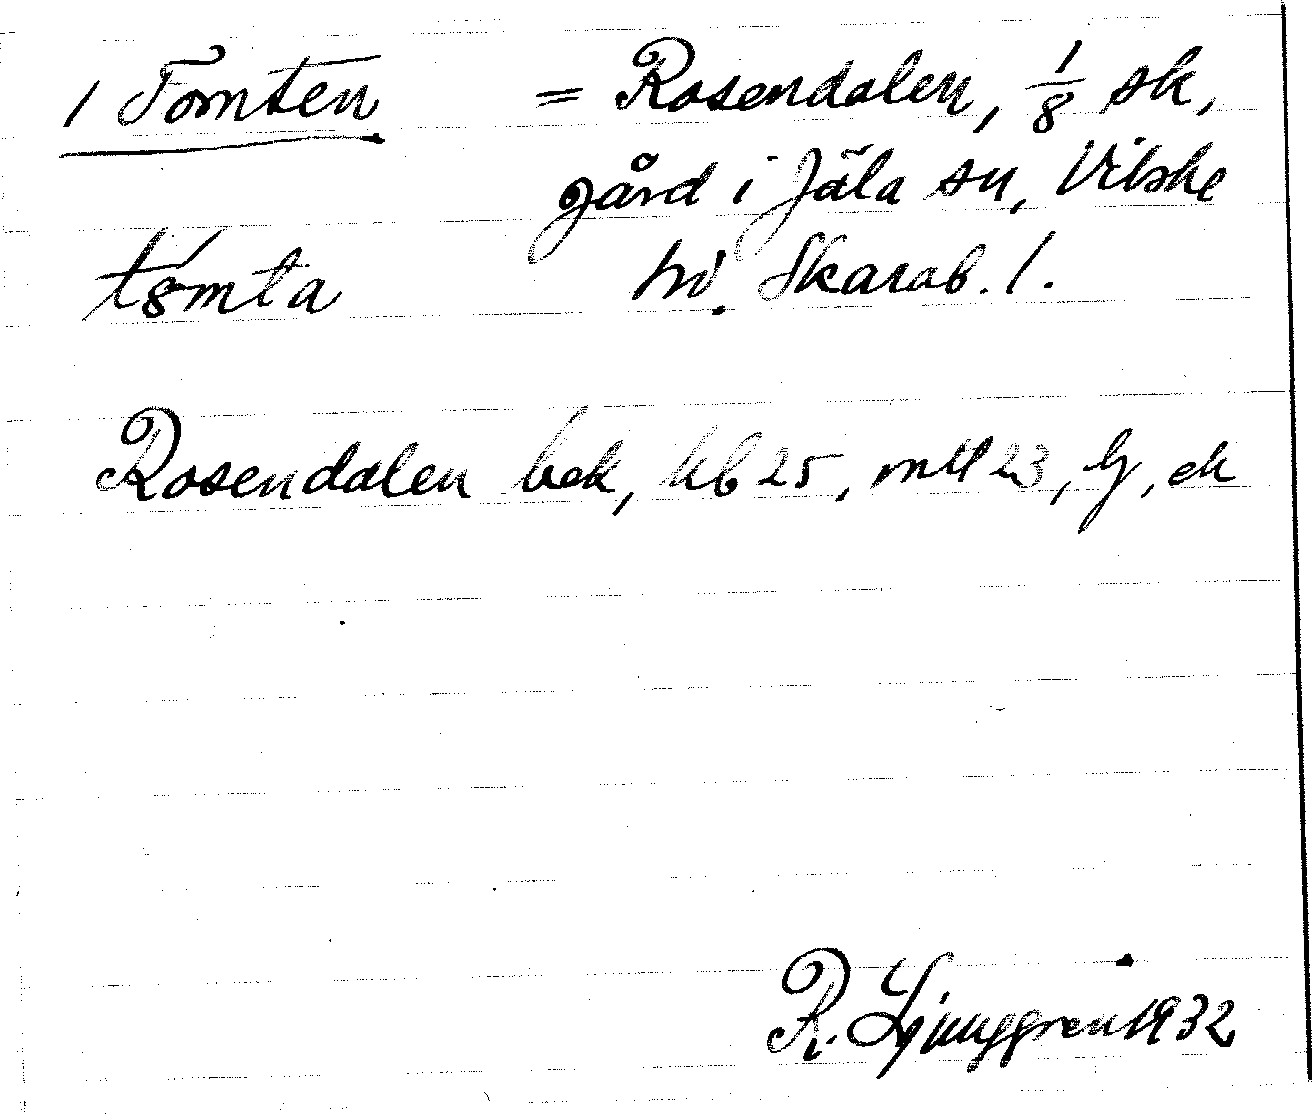 1 Tomten = Rosendalen, 1/8 sk,
gård i Jäla sn, Vilske
tømta hd. Skarab. l.
Rosendalen bek, kb 25, mtl 23, lj, ek
R. Ljunggren 1932